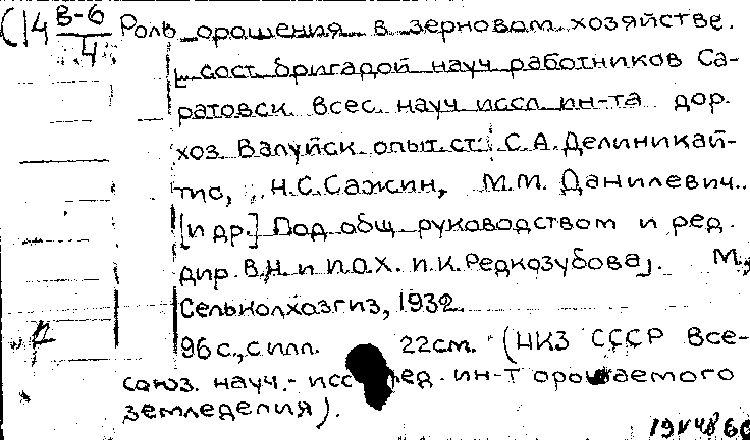 С14 В-6/4 Роль орошения в зерновом хозяйстве.
[сост. бригадой науч работников Са-
ратовск. Всес. науч иссл ин-та дор.
хоз Валуйск. опыт. ст. С.А. Делиникай-
тис, Н.С. Сажин, М.М. Данилевич..
[и др.] Под общ. руководством и ред.
дир. В.Н. и П.О.Х. П.К. Редкозубова]. М.,
Сельколхозгиз, 1932.
96 с., с илл. 22см. (НКЗ СССР Все-
союз. науч.- ин-т орошаемого
земледелия).